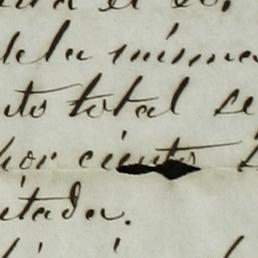 de la misma
nto total se
por ciento
itada.